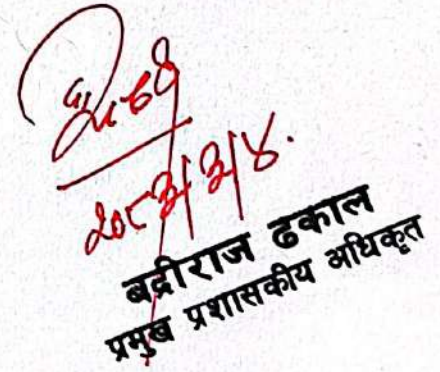 २०८३/३/४.
बद्रीराज ढकाल
प्रमुख प्रशासकीय अधिकृत